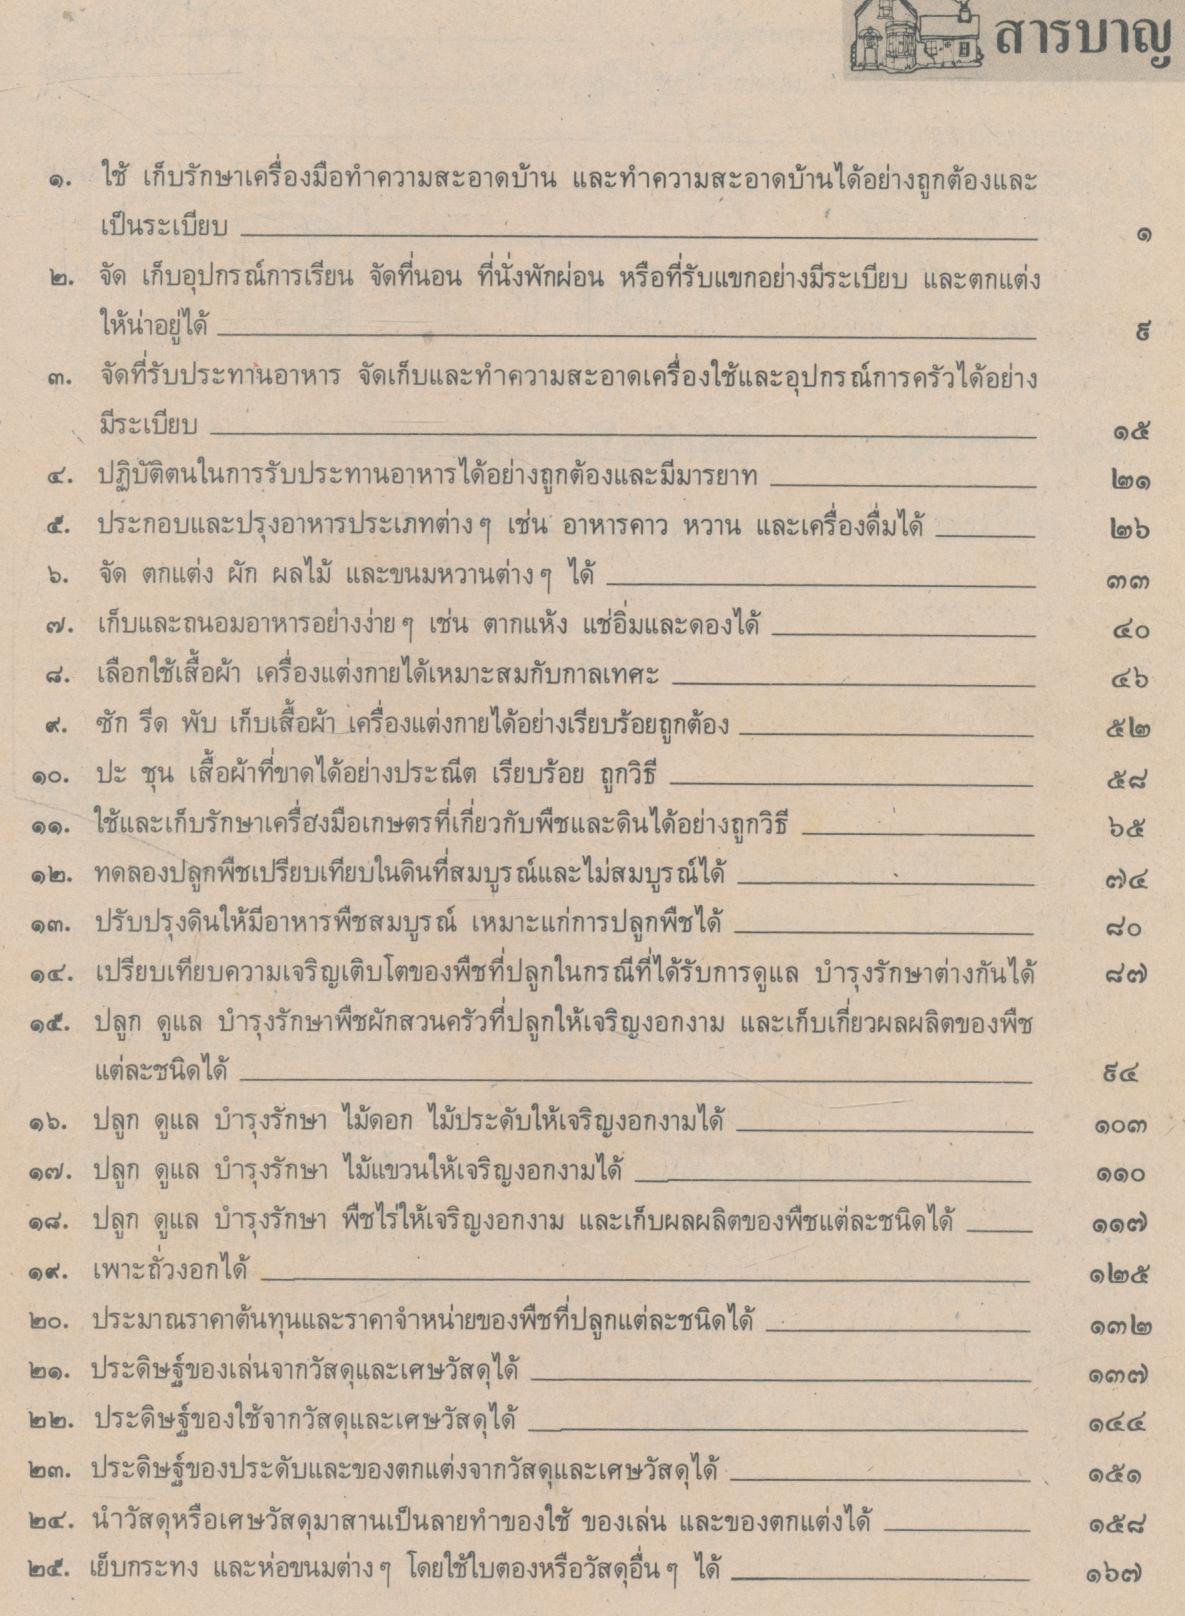 สารบาญ
๑. ใช้ เก็บรักษาเครื่องมือทำความสะอาดบ้าน และทำความสะอาดบ้านได้อย่างถูกต้องและ
เป็นระเบียบ ๑
๒. จัด เก็บอุปกรณ์การเรียน จัดที่นอน ที่นั่งพักผ่อน หรือที่รับแขกอย่างมีระเบียบ และตกแต่ง
ให้น่าอยู่ได้ ๙
๓. จัดที่รับประทานอาหาร จัดเก็บและทำความสะอาดเครื่องใช้และอุปกรณ์การครัวได้อย่าง
มีระเบียบ ๑๕
๔. ปฏิบัติตนในการรับประทานอาหารได้อย่างถูกต้องและมีมารยาท ๒๑
๕. ประกอบและปรุงอาหารประเภทต่างๆ เช่น อาหารคาว หวาน และเครื่องดื่มได้ ๒๖
๖. จัด ตกแต่ง ผัก ผลไม้ และขนมหวานต่างๆ ได้ ๓๓
๗. เก็บและถนอมอาหารอย่างง่ายๆ เช่น ตากแห้ง แช่อิ่มและดองได้ ๔๐
๘. เลือกใช้เสื้อผ้า เครื่องแต่งกายได้เหมาะสมกับกาลเทศะ ๔๖
๙. ซัก รีด พับ เก็บเสื้อผ้า เครื่องแต่งกายได้อย่างเรียบร้อยถูกต้อง ๕๒
๑๐. ปะ ชุน เสื้อผ้าที่ขาดได้อย่างประณีต เรียบร้อย ถูกวิธี ๕๘
๑๑. ใช้และเก็บรักษาเครื่องมือเกษตรที่เกี่ยวกับพืชและดินได้อย่างถูกวิธี ๖๕
๑๒. ทดลองปลูกพืชเปรียบเทียบในดินที่สมบูรณ์และไม่สมบูรณ์ได้ ๗๔
๑๓. ปรับปรุงดินให้มีอาหารพืชสมบูรณ์ เหมาะแก่การปลูกพืชได้ ๘๐
๑๔. เปรียบเทียบความเจริญเติบโตของพืชที่ปลูกในกรณีที่ได้รับการดูแล บำรุงรักษาต่างกันได้ ๘๗
๑๕. ปลูก ดูแล บำรุงรักษาพืชผักสวนครัวที่ปลูกให้เจริญงอกงาม และเก็บเกี่ยวผลผลิตของพืช
แต่ละชนิดได้ ๙๔
๑๖. ปลูก ดูแล บำรุงรักษา ไม้ดอก ไม้ประดับให้เจริญงอกงามได้ ๑๐๓
๑๗. ปลูก ดูแล บำรุงรักษา ไม้แขวนให้เจริญงอกงามได้ ๑๑๐
๑๘. ปลูก ดูแล บำรุงรักษา พืชไร่ให้เจริญงอกงาม และเก็บผลผลิตของพืชแต่ละชนิดได้ ๑๑๗
๑๙. เพาะถั่วงอกได้ ๑๒๕
๒๐. ประมาณราคาต้นทุนและราคาจำหน่ายของพืชที่ปลูกแต่ละชนิดได้ ๑๓๒
๒๑. ประดิษฐ์ของเล่นจากวัสดุและเศษวัสดุได้ ๑๓๗
๒๒. ประดิษฐ์ของใช้จากวัสดุและเศษวัสดุได้ ๑๔๔
๒๓. ประดิษฐ์ของประดับและของตกแต่งจากวัสดุและเศษวัสดุได้ ๑๕๑
๒๔. นำวัสดุหรือเศษวัสดุมาสานเป็นลายทำของใช้ ของเล่น และของตกแต่งได้ ๑๕๘
๒๕. เย็บกระทง และห่อขนมต่างๆ โดยใช้ใบตองหรือวัสดุอื่นๆ ได้ ๑๖๗